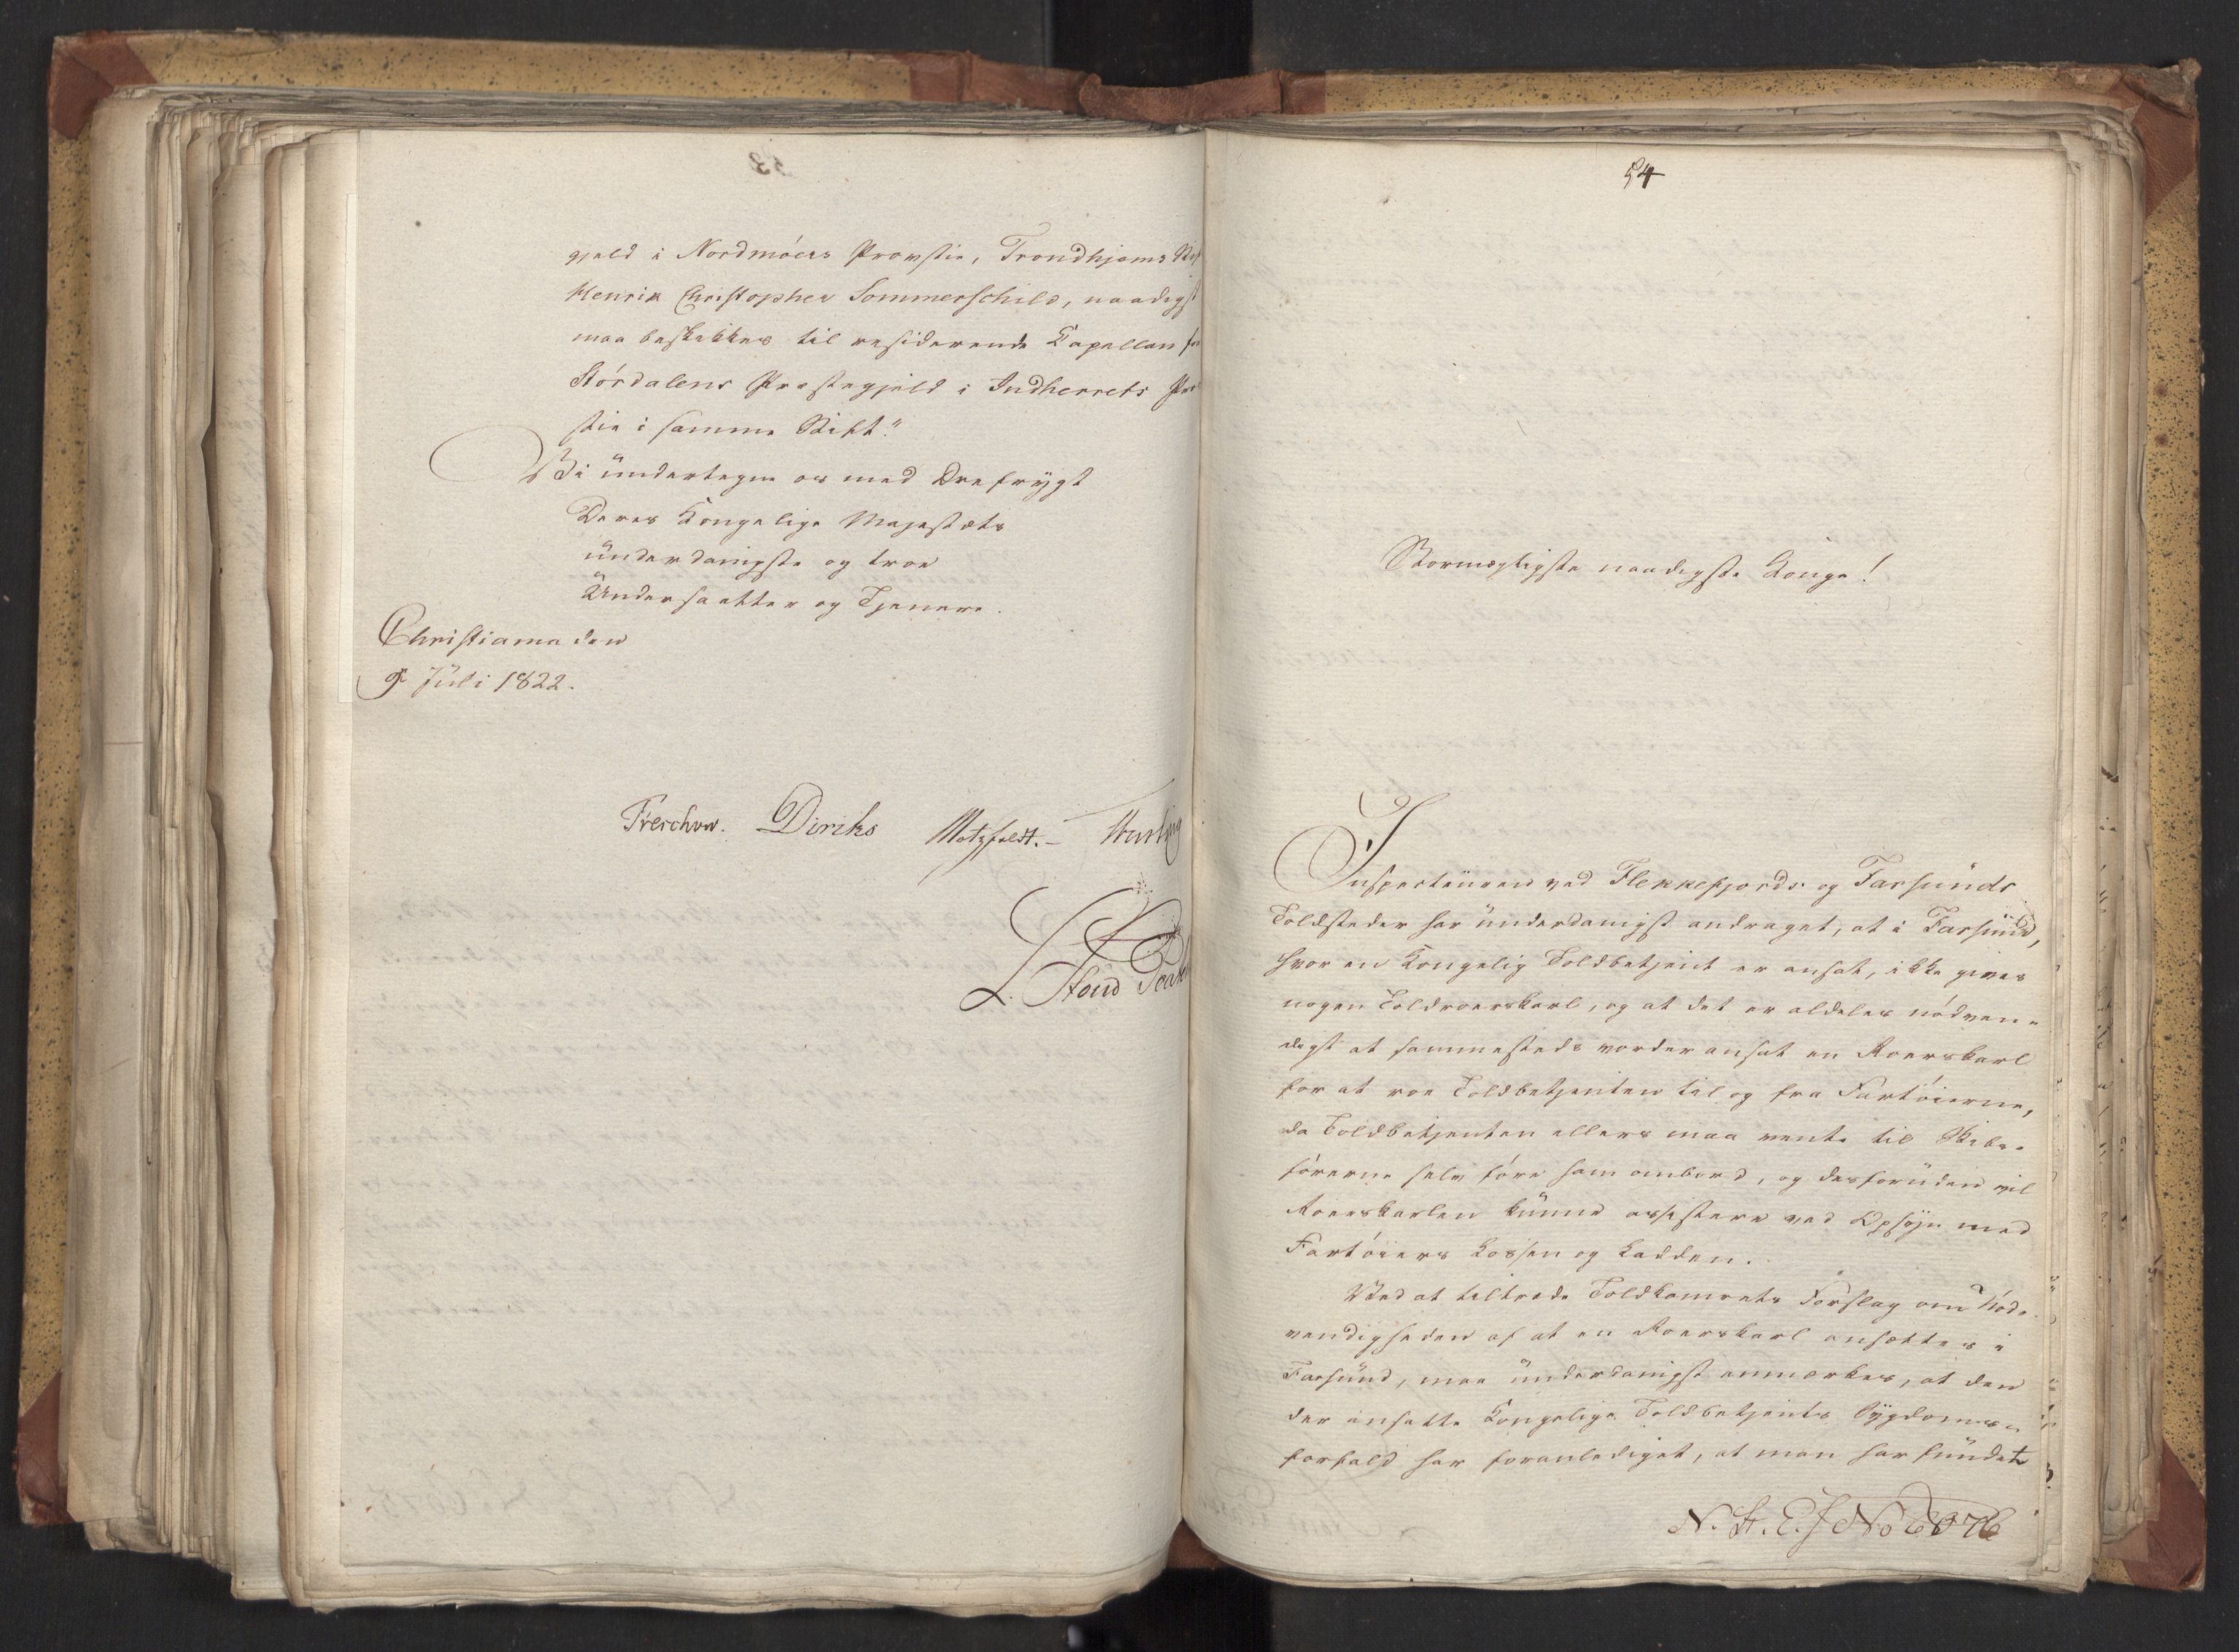 gjeld i Nordmöers Provstie, Trondhjems Stift
Henrik Christopher Sommerschild, naadigst
maa beskikkes til residerende Capellan for
Stördalens Præstegjeld i Indherrets Pro
stie i samme Stift."
Vi undertegne os med Ærefrygt
Deres Kongelige Majestæts
underdanigste og troe
Undersaatter og Tjenere.
Christiania den
9de Juli 1822.
Treschow. Diriks Motzfeldt. -
L. Stoud
54
Stormægtigste naadigste Konge!
Inspecteuren ved Flekkefjords og Farsunds
Toldsteder har underdanigst andraget, at i Farsund,
hvor en Kongelig Toldbetjent er ansat, ikke gives
nogen Toldroerskarl, og at det er aldeles nödven-
digt at sammesteds vorder ansat en Roerskarl
for at roe Toldbetjenten til og fra Fartöierne,
da Toldbetjenten ellers maa vente til Skibs-
förerne selv före ham ombord, og desforuden vil
Roerskarlen kunne assistere ved Opsyn med
Fartöiers Lossen og Ladden.
Ved at tiltræde Toldkamrets Forslag om Nöd-
vendigheden af at en Roerskarl ansættes i
Farsund, maa underdanigst anmærkes, at den
der ansatte Kongelige Toldbetjents Sygdoms-
forfald har foranlediget, at man har fundet
N. St. E. J No 6076